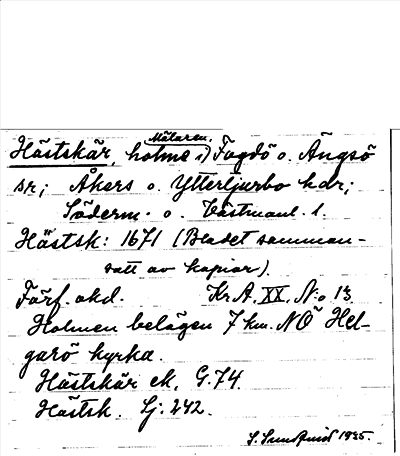 Mälaren.
Hästskär, holme i) Fogdö o. Ängsö
sr; Åkers o. Yttertjurbo hdr;
Söderm. o. Västmanl. l.
Hästsk: 1671 (Bladet samman-
satt av kopior).
Förf. okd. Kr.A. XX. N:o 13
Holmen belägen 7 km. NÖ Hel-
garö kyrka.
Hästskär ek. G.74.
Hästsk. Lj. 242.
S. Sundquist 1935.